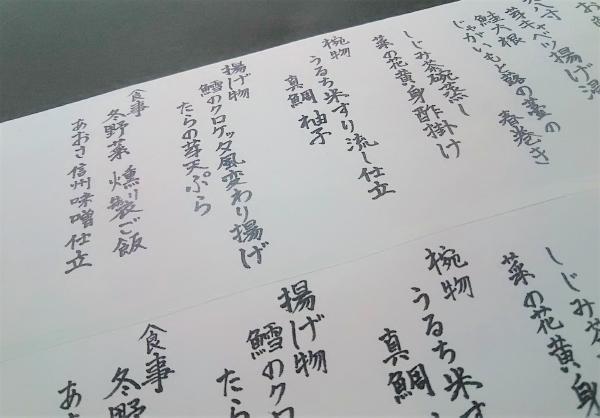 八寸
芽キャベツ 揚げ浸
鮭大根
じゃがいもと蕗の薹の春巻き
しじみ茶碗蒸し
菜の花黄身酢掛け
椀物
うるち米すり流し仕立
真鯛 柚子
揚げ物
鱈のクロケッタ風変わり揚げ
たらの芽天ぷら
食事
冬野菜 燻製ご飯
あおさ信州味噌仕立
しじみ茶
菜の花黄身
椀物
うるち米す
真鯛
揚げ物
鱈のクロ
たら
食事
冬野
あ